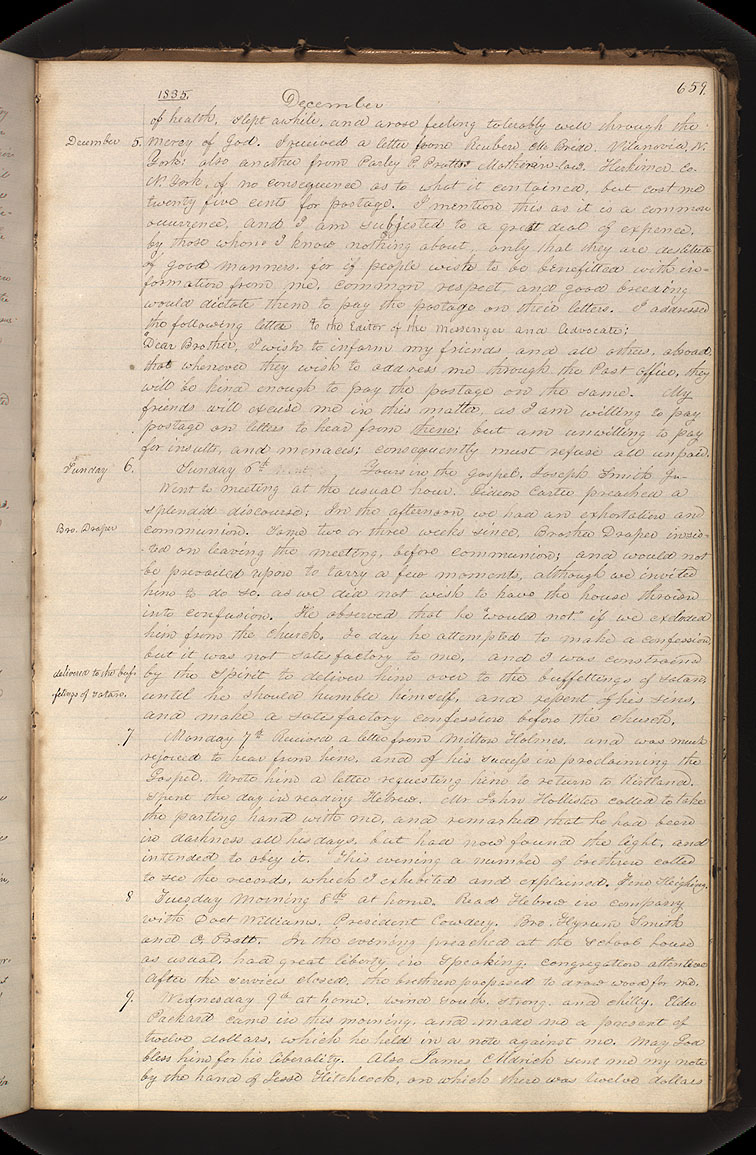 1835.
December
659
of health, slept awhile, and arose feeling tolerably well through the
December 5. mercy of God. I received a letter from Reuben Mc Bride, Vilanovia, N.
York; also another from Parley P. Pratts Mother-in-law, Herkimer Co.
N. York, of no consequence as to what it contained, but cost me
twenty five cents for postage. I mention this as it is a common
occurrence, and I am subjected to a great deal of expence,
by those whom I know nothing about, only that they are destitute
of good manners, for if people wish to be benefitted with in-
formation from me, common respect and good breeding
would dictate them to pay the postage on their letters. I addressed
the following letter to the Editor of the messenger and Advocate;
Dear Brother, I wish to inform my friends, and all others, abroad,
that whenever they wish to address me through the Post office, they
will be kind enough to pay the postage on the same. My
friends will excuse me in this matter, as I am willing to pay
postage on letters to hear from them; but am unwilling to pay
for insults, and menaces; consequently must refuse all unpaid.
Sunday 6. Sunday 6th Yours in the gospel, Joseph Smith Jr.
Went to meeting at the usual hour. Gideon Carter preached a
splendid discourse; In the afternoon we had an exhortation and
Bro. Draper communion. Some two or three weeks since, Brother Draper insis-
ted on leaving the meeting, before communion; and would not
be prevailed upon to tarry a few moments, although we invited
him to do so, as we did not wish to have the house thrown
into confusion. He observed that he "would not" if we excluded
him from the church. To day he attempted to make a confession,
but it was not satisfactory to me, and I was constrained
delivered to the buf- by the spirit to deliver him over to the buffettings of satan,
fetings of satan. until he should humble himself, and repent of his sins,
and make a satisfactory confession before the church.
7 Monday 7th Received a letter from Milton Holmes, and was much
rejoiced to hear from him, and of his success in proclaiming the
Gospel. Wrote him a letter requesting him to return to Kirtland.
Spent the day in reading Hebrew. Mr John Hollister called to take
the parting hand with me, and remarked that he had been
in darkness all his days, but had now found the light, and
intended to obey it. This evening a number of brethren called
to see the records, which I exhibited and explained. Fine Sleighing.
8 Tuesday Morning 8th at home. Read Hebrew in company
with Doct Williams, President Cowdery, Bro. Hyrum Smith
and O. Pratt. In the evening preached at the school house
as usual, had great liberty in speaking. congregation attentive
after the services closed, the brethren proposed to draw wood for me.
9. Wednesday 9th at home. wind south, strong, and chilly. Elder
Packard came in this morning, and made me a present of
twelve dollars, which he held in a note against me. May God
bless him for his liberality. Also James Aldrich sent me my note
by the hand of Jesse Hitchcock, on which there was twelve dollars